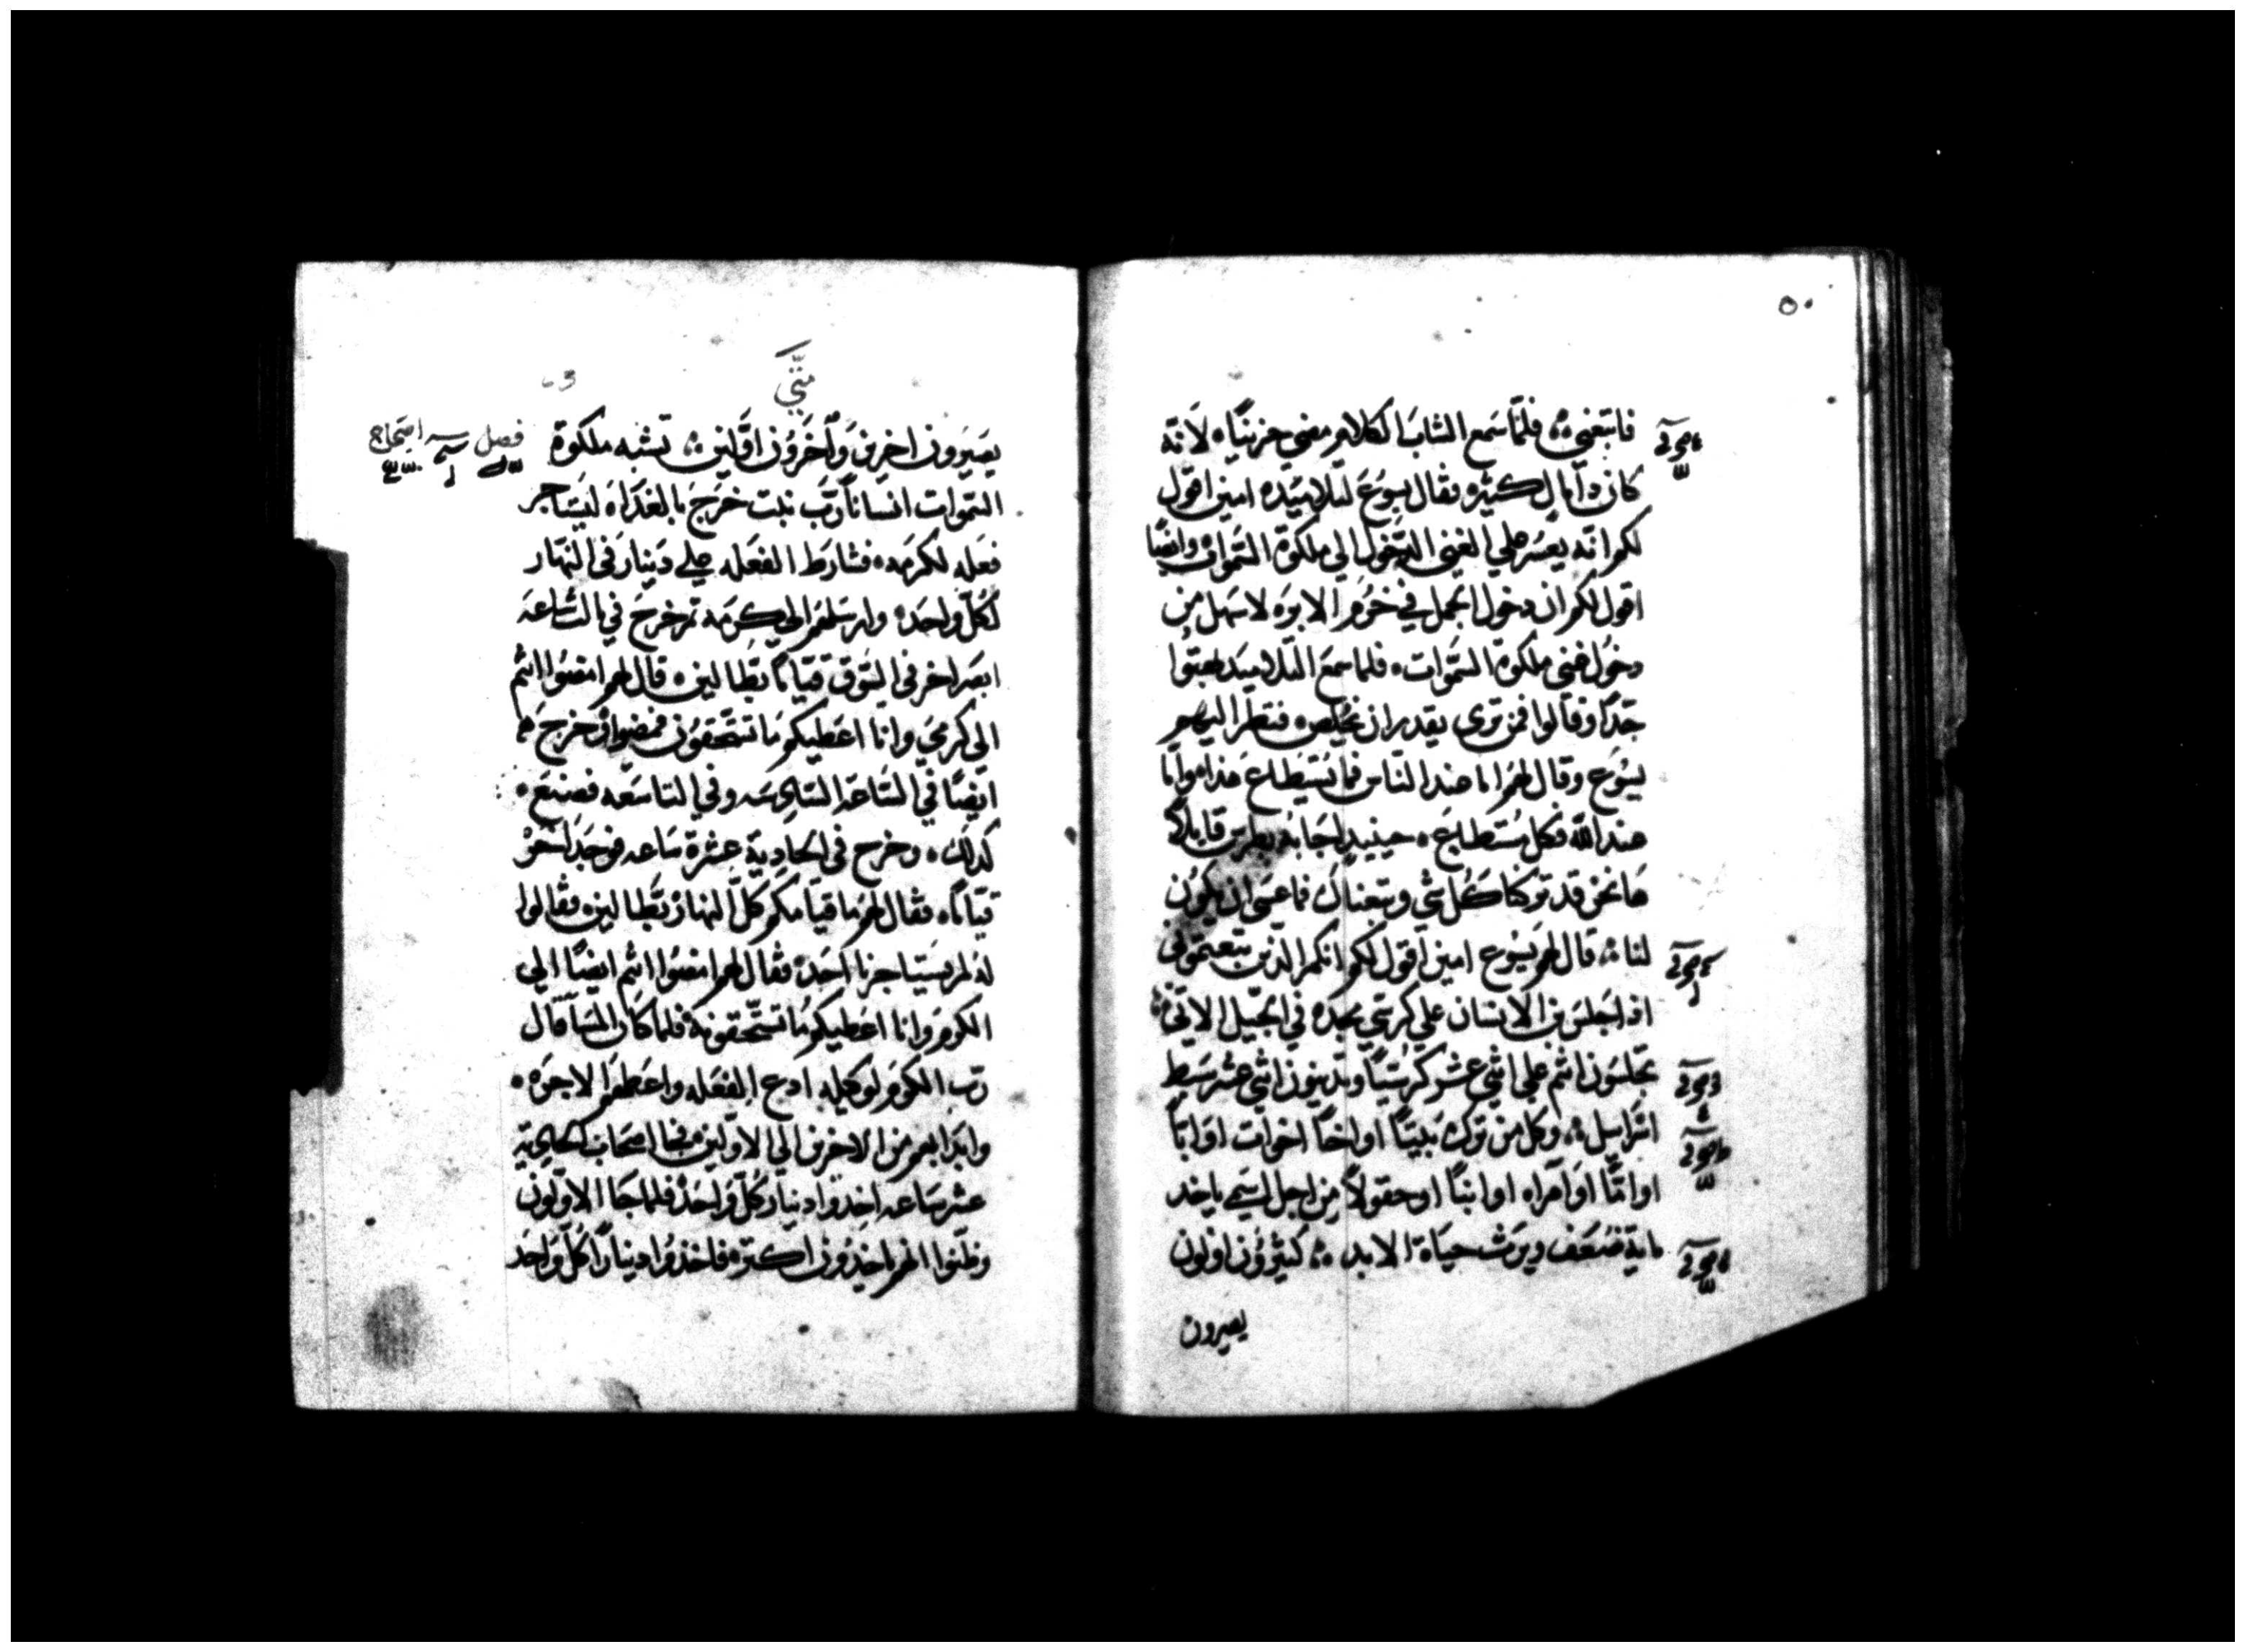 ٥٠
فاتبغني فلما سمع الشاب الكلام مضي حزينا لانه
كان ذا مال كثير وفقال يسوع لتلاميده امين اقول
لكم انه يعسر علي الغني الدخول الي ملكوة السموات وايضا
اقول لكم ان دخول الجمل في خرم الابره لاسهل من
دخول غني ملكوة السموات فلما سمع التلاميد بهتوا
جدا وقالوا فمن تري يقدر ان يخلص فنظر اليهم
يسوع وقال لهم اما عند الناس فما يستطاع هذا واما
عند الله فكل مستطاع حينيد اجابه بطرس قايلا
ها نحن قد تركنا كل شي وتبعناك فما عسي ان يكون
لنا قال لهم يسوع امين اقول لكم انكم الدين تبعتموني
اذا جلس بن الانسان علي كرسي مجده في الجيل الاتي
تجلسون انتم علي اثني عشر كرسيا وتدينون اثني عشر سبط
اسرايل وكل من ترك بيتا او اخا اخوات او ابا
او اما او امراه او ابنا او حقولا من اجل اسمي ياخد
ماية ضعف ويرث حياة الابد كثيرون اولون
يصيرون
متي
فصل اصحاح
يصيرون اخرين واخرون اولين تشبه ملكوة
السموات انسانا رب بيت خرج بالغداه ليستاجر
فعله لكرمه فشارط الفعله علي دينار في النهار
لكل واحد وارسلهم الي كرمه ثم خرج في الثالثاعه
ابصر اخر في السوق قياما بطالين قال لهم امضوا انتم
الي كرمي وانا اعطيكم ما تستحقون فمضوا وخرج
ايضا في الساعة السادسه وفي التاسعه فصنع
كدلك وخرج في الحادية عشرة ساعه فوجد اخر
قياما فقال لهم ما قيامكم كل النهار بطالين فقالوا
له لم يستاجرنا احد فقال لهم امضوا انتم ايضا الي
الكرم وانا اعطيكم ما تستحقونه فلما كان المسا قال
رب الكرم لوكيله ادع الفعله واعطهم الاجره
وابدا بهم من الاخرين الي الاولين فجا اصحاب الحادية
عشر ساعه اخدوا دينار كل واحد فلما جا الاولون
وظنوا انهم ياخدون اكتر فاخذوا دينارا كل واحد